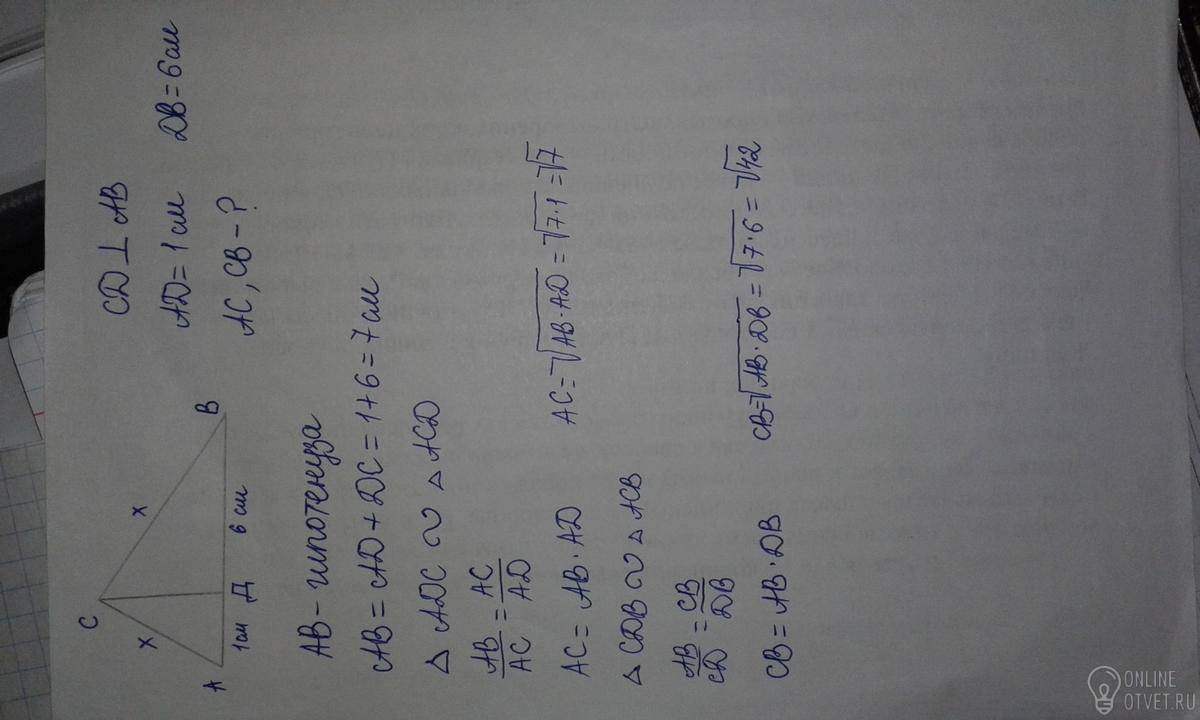 C
x
x
A
1см
Д
6 см
B
CD ⊥ AB
AD = 1 см DB = 6 см
AC, CB - ?
AB - гипотенуза
AB = AD + DC = 1 + 6 = 7 см
△ ADC ∾ △ ACD
AB/AC = AC/AD
AC = AB · AD AC = √AB·AD = √7·1 = √7
△ CDB ∾ △ ACB
AB/CD = CB/DB
CB = AB · DB CB = √AB·DB = √7·6 = √42
ONLINE
OTVET.RU